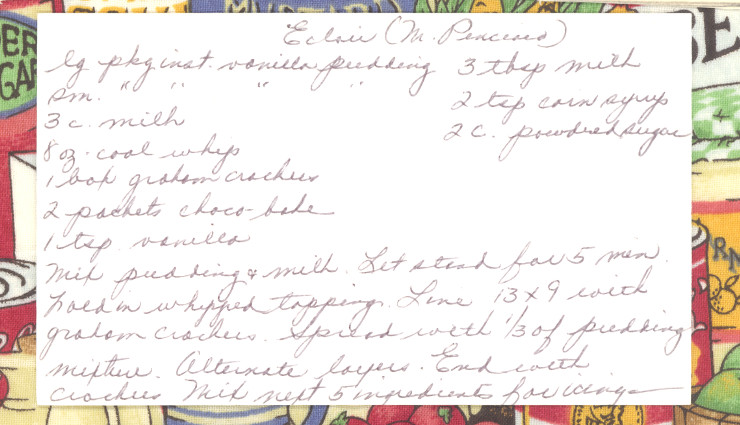 Eclair (M. Penciard)
lg pkg inst. vanilla pudding 3 tbsp milk
sm. " " " "
2 tsp corn syrup
3 c. milk
2 c. powdered sugar
8 oz. cool whip
1 box graham crackers
2 packets choco-bake
1 tsp. vanilla
Mix pudding & milk. Let stand for 5 min.
Fold in whipped topping. Line 13x9 with
graham crackers. Spread with 1/3 of pudding
mixture. Alternate layers. End with
crackers Mix next 5 ingredients for icing
ER
GAR
E
RN